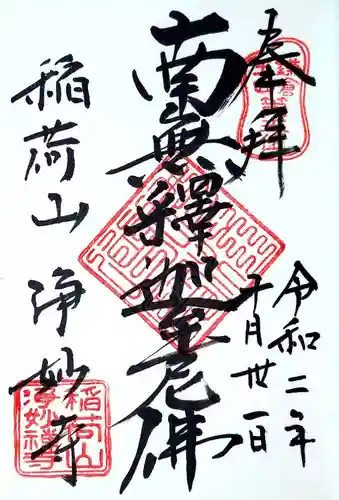 奉拝
令和二年
十月卅一日
南無釋迦牟尼佛
稲荷山 浄妙寺
稲荷山
浄妙禅寺